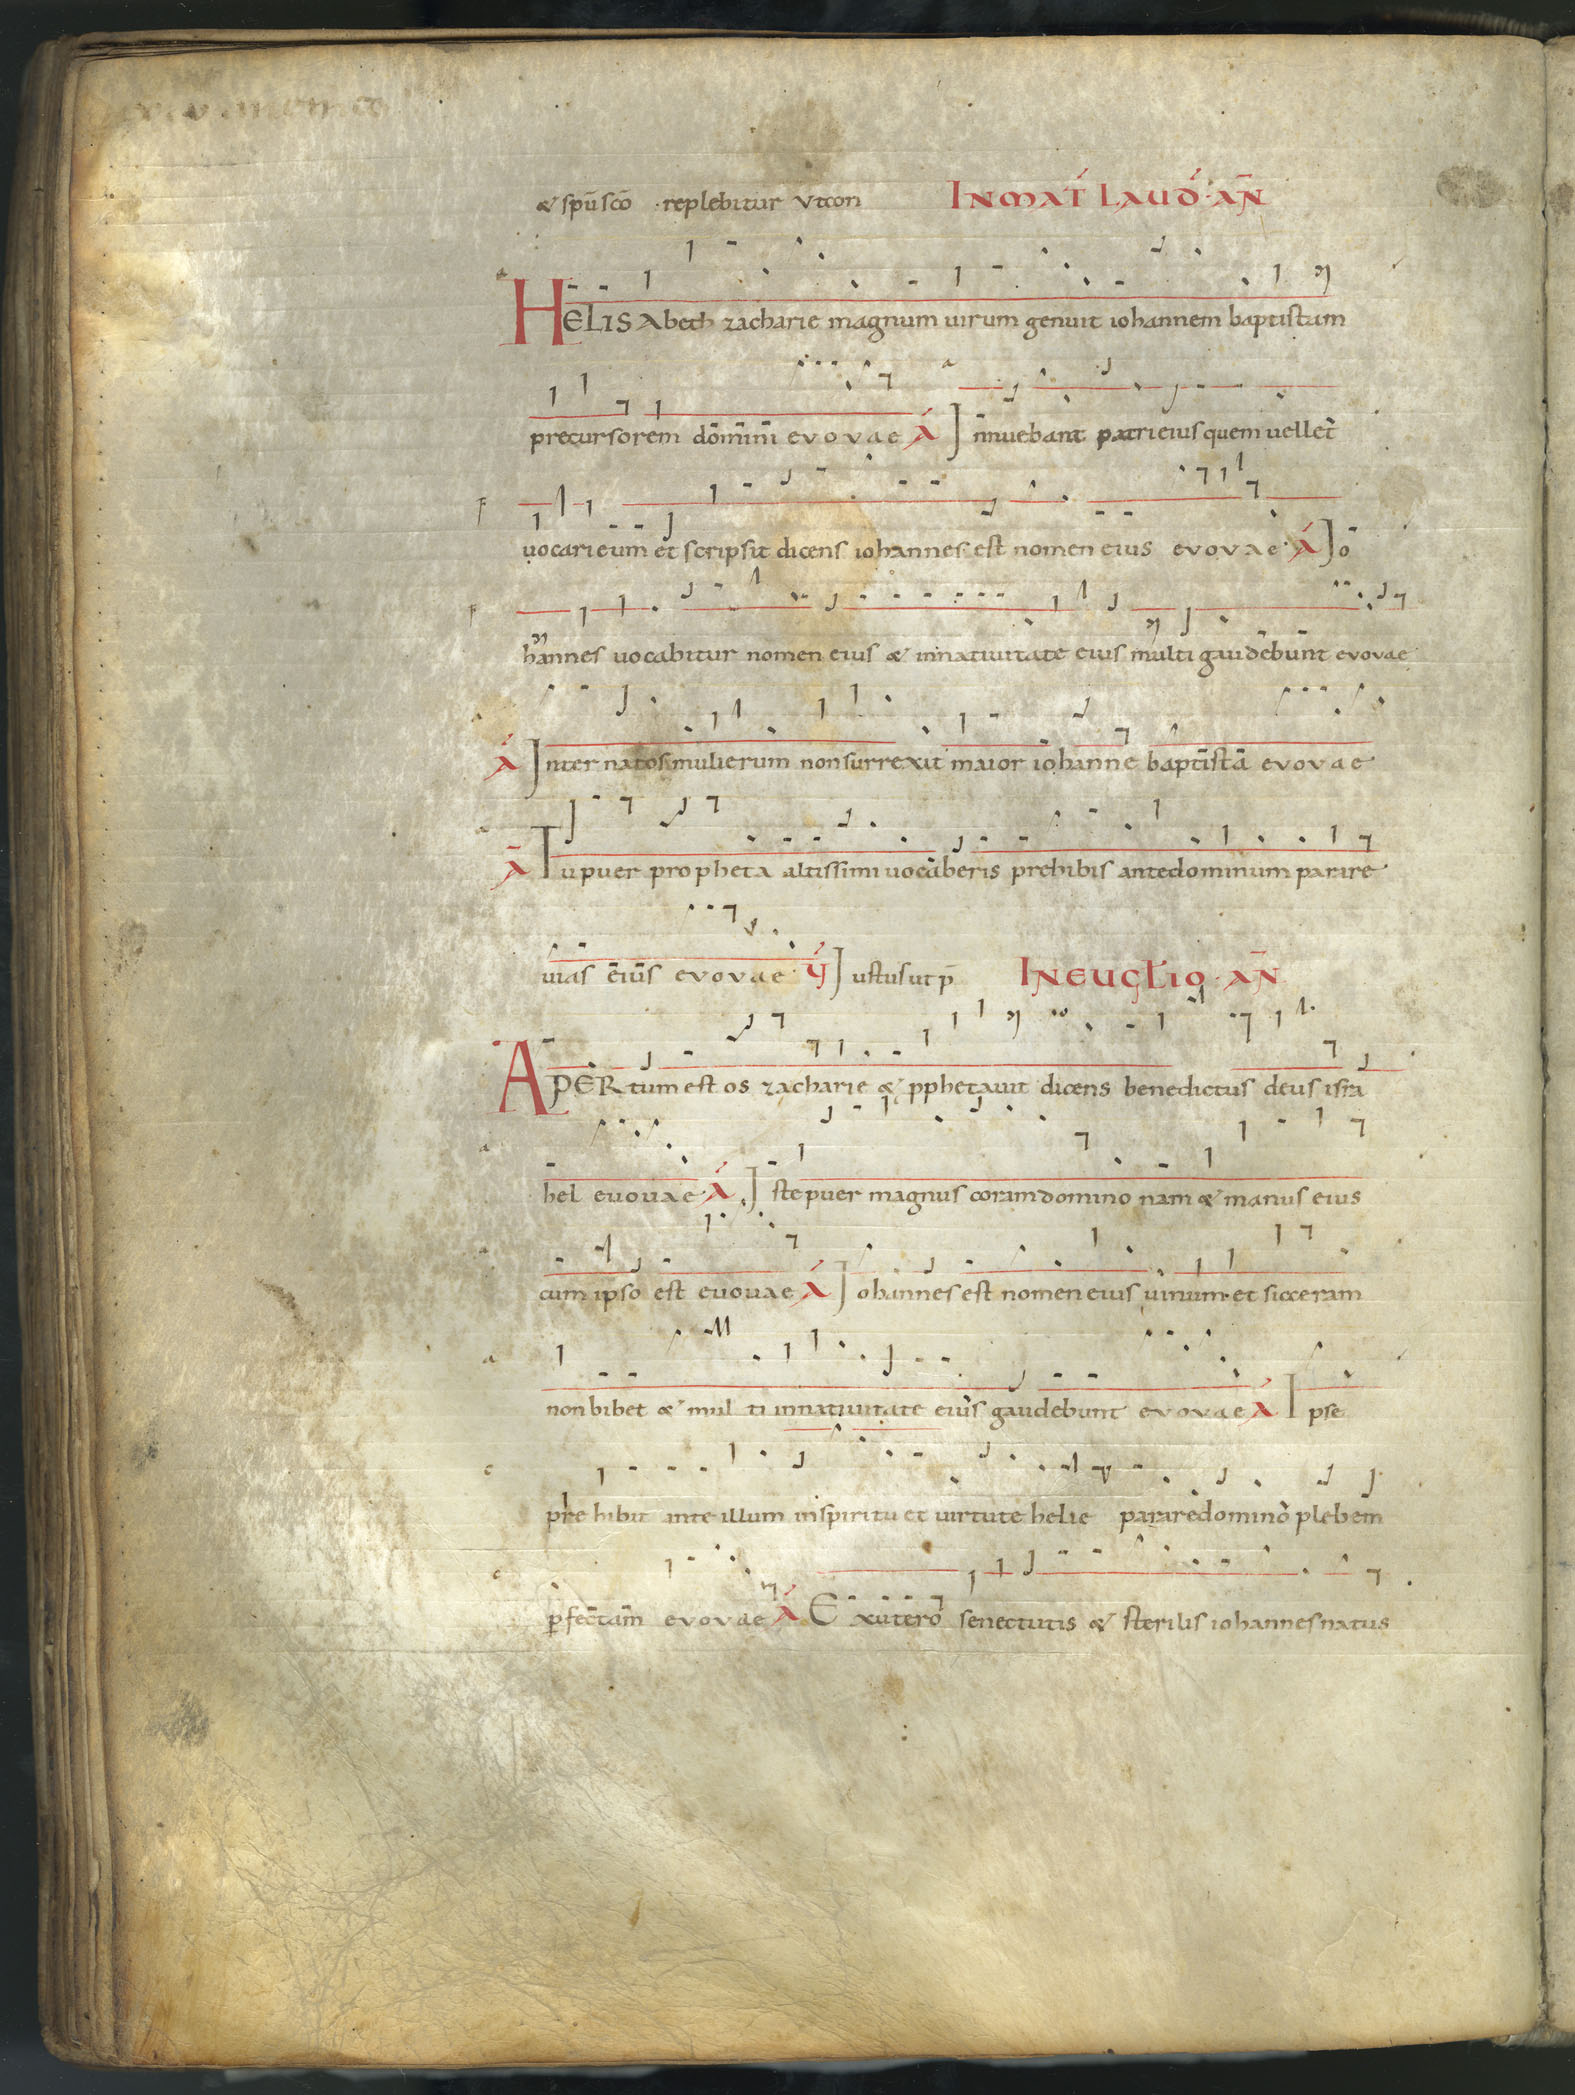 & sp̄u sc̄o · replebitur Vt con IN MAT́ LAUD́ · AÑ
HELISAbeth zacharie magnum uirum genuit iohannem baptistam
precursorem dōmīnī evovae Á Īnnuebant patri eius quem uellet
uocari eum et scripsit dicens iohannes est nomen eius evovae · Á Io
hannes uocabitur nomen eius & in natiuitate eius multi gaudebunt evovae
Á Inter natos mulierum non surrexit maior iohanne baptistā evovae
Ā Tu puer propheta altissimi uocaberis prehibis ante dominum parare
uias eius evovae · Ý Iustus ut p̄ IN EUGŁIO · AÑ
APERtum est os zacharie & pphetauit dicens benedictus deus isra
hel euouae · Á Iste puer magnus coram domino nam & manus eius
cum ipso est euouae Á Iohannes est nomen eius uinum et sicceram
non bibet & mul ti in natiuitate eius gaudebunt evovae Á Ipse
pre hibit ante illum in spiritu et uirtute helie parare domino plebem
perfectam evovae Á Ex utero senectutis & sterilis iohannes natus